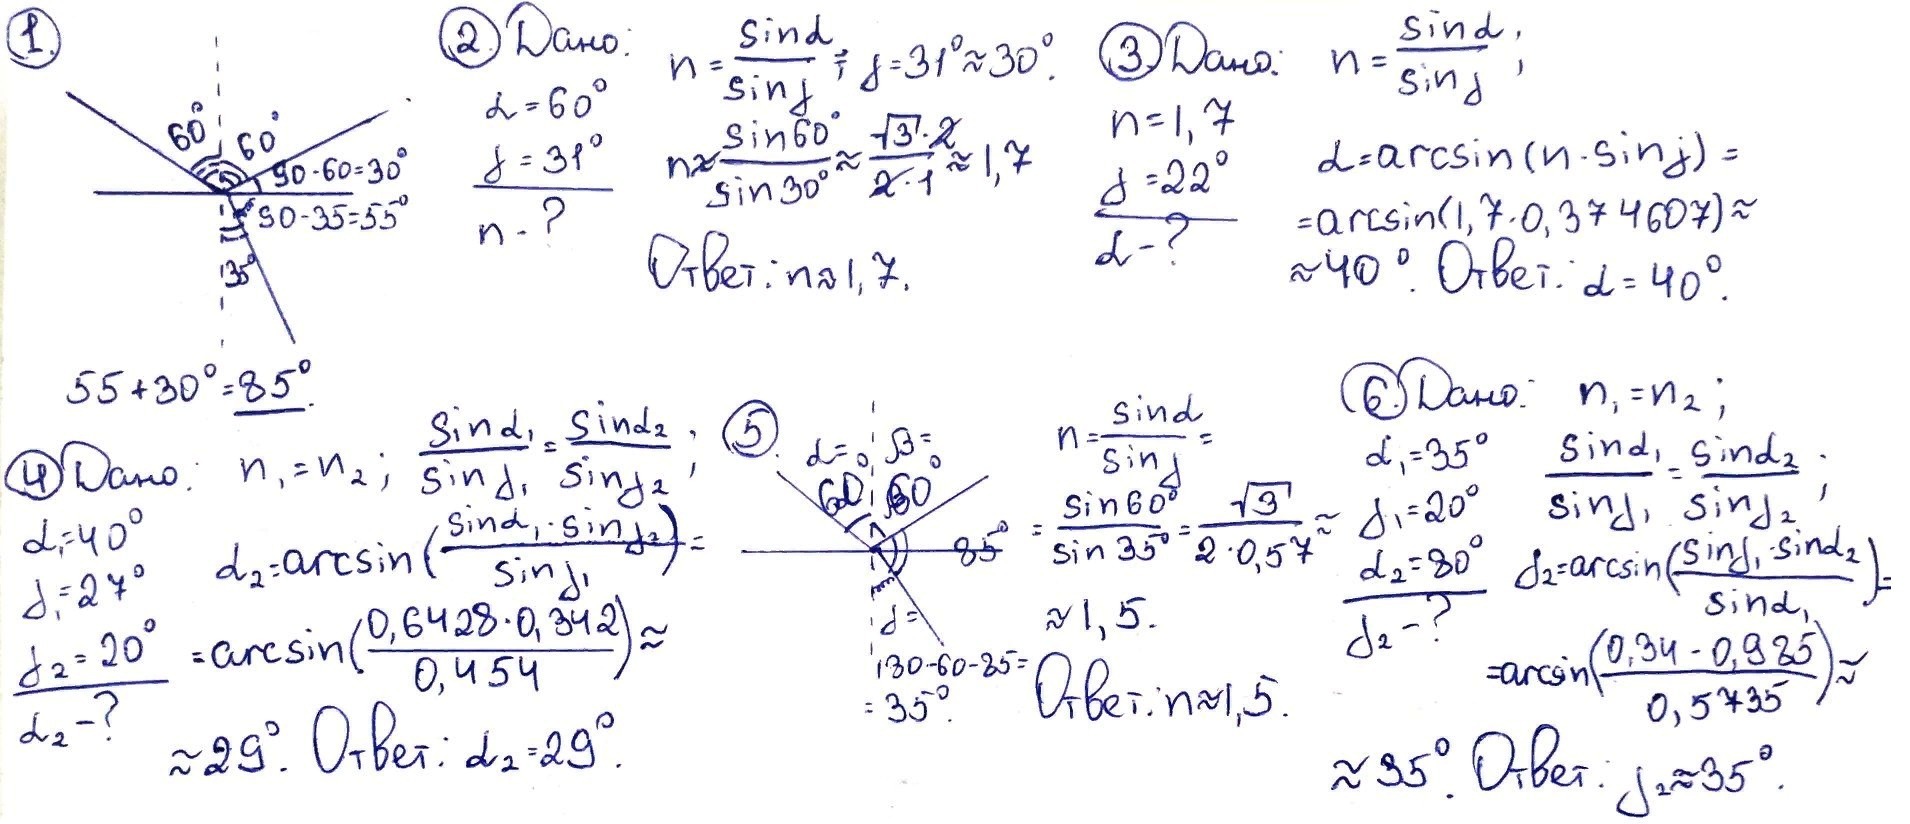 1.
60°
60°
90-60=30°
90-35=55°
35°
55+30°=85°.
2. Дано:
α=60°
γ=31°
n-?
n=sinα/sinγ; γ=31°≈30°.
n≈sin60°/sin30°≈√3·2/2·1≈1,7
Ответ: n≈1,7.
3. Дано:
n=1,7
γ=22°
α-?
n=sinα/sinγ;
α=arcsin(n·sinγ)=
=arcsin(1,7·0,374607)≈
≈40°. Ответ: α=40°.
4 Дано:
α₁=40°
γ₁=27°
γ₂=20°
α₂-?
n₁=n₂; sinα₁/sinγ₁=sinα₂/sinγ₂;
α₂=arcsin(sinα₁·sinγ₂/sinγ₁)=
=arcsin(0,6428·0,342/0,454)≈
≈29°. Ответ: α₂=29°.
5.
α= β=
60° 60°
85°
γ=
180-60-85=
=35°.
n=sinα/sinγ=
=sin60°/sin35°=√3/2·0,57≈
≈1,5.
Ответ: n≈1,5.
6. Дано:
α₁=35°
γ₁=20°
α₂=80°
γ₂-?
n₁=n₂;
sinα₁/sinγ₁=sinα₂/sinγ₂;
γ₂=arcsin(sinγ₁·sinα₂/sinα₁)=
=arcsin(0,34-0,985/0,5735)≈
≈35°. Ответ: γ₂≈35°.